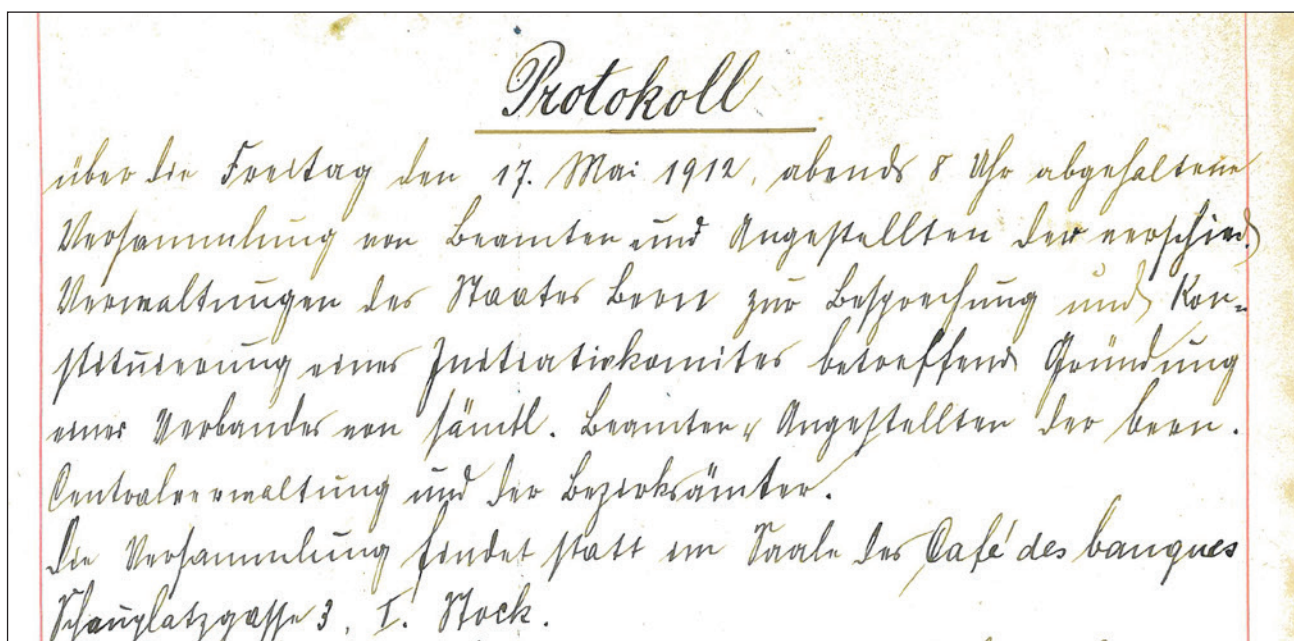 Protokoll
über die Freitag den 17. Mai 1912, abends 8 Uhr abgehaltene
Versammlung von Beamten und Angestellten der verschied.
Verwaltungen des Staates Bern zur Besprechung und Kon=
stituierung eines Initiativkomites betreffend Gründung
eines Verbandes von sämtl. Beamten u. Angestellten der bern.
Centralverwaltung und der Bezirksämter.
Die Versammlung findet statt im Saale des Café des banques
Schauplatzgasse 3, I. Stock.